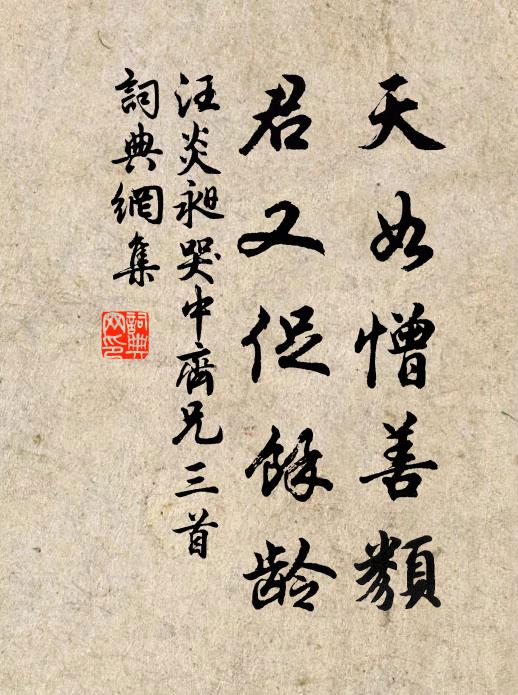 天如憎善類
君又促餘龄
汪炎昶哭中齋兄三首
詞典網集
詞典網印